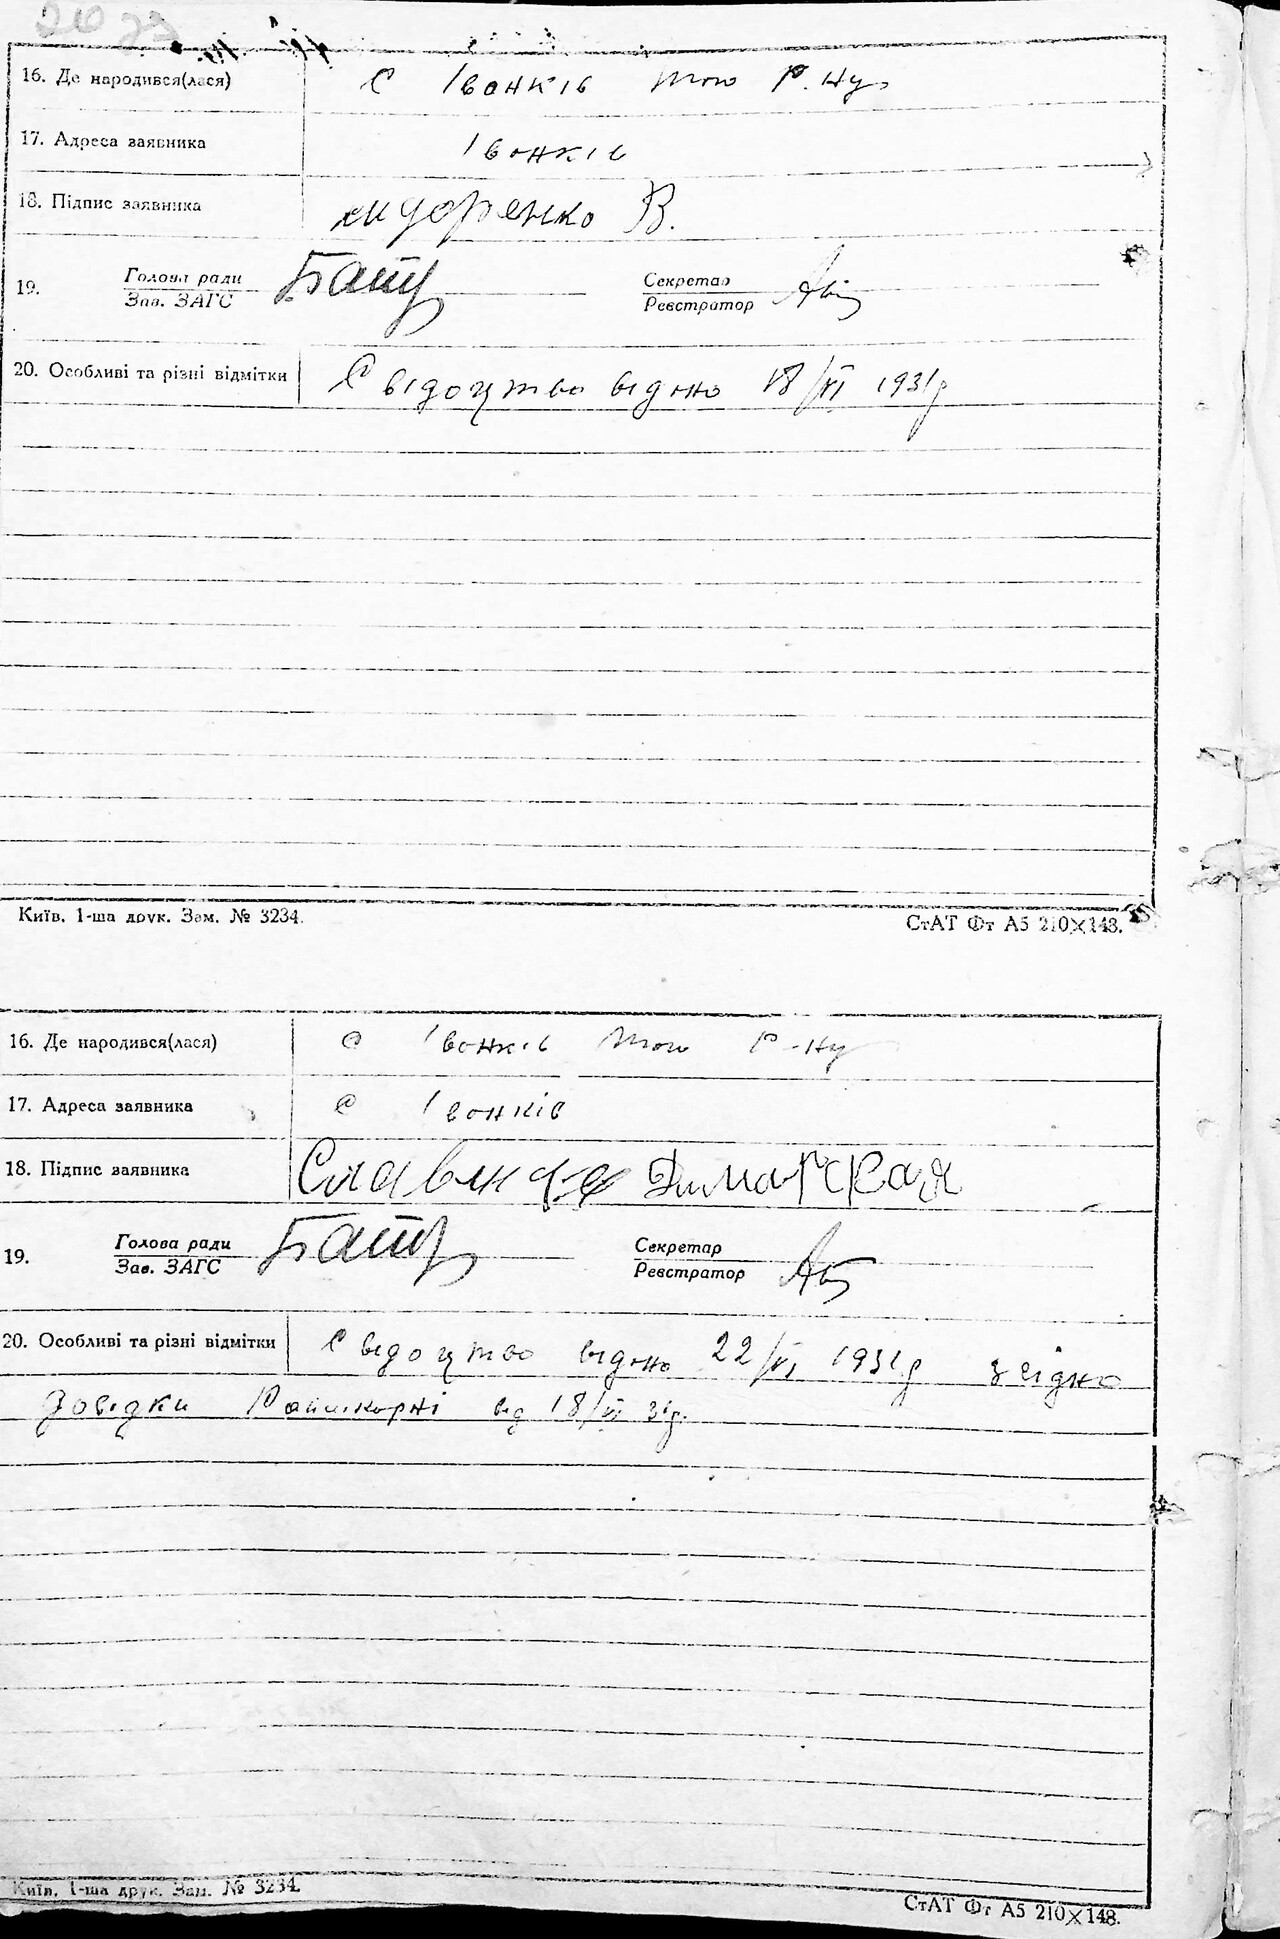 16. Де народився(лася) с Іванків того р-ну
17. Адреса заявника Іванків
18. Підпис заявника Сидоренко В.
19. Голова ради Секретар
Зав. ЗАГС Реєстратор
20. Особливі та різні відмітки Свідоцтво відано 18/VI 1931р
Київ. 1-ша друк. Зам. № 3234.
СтАТ Фт А5 210×148.
16. Де народився(лася) с Іванків того р-ну
17. Адреса заявника с Іванків
18. Підпис заявника
19. Голова ради Секретар
Зав. ЗАГС Реєстратор
20. Особливі та різні відмітки Свідоцтво відано 22/VI 1931р згідно
довідки від 18/VI 31р.
Київ. 1-ша друк. Зам. № 3234.
СтАТ Фт А5 210×148.